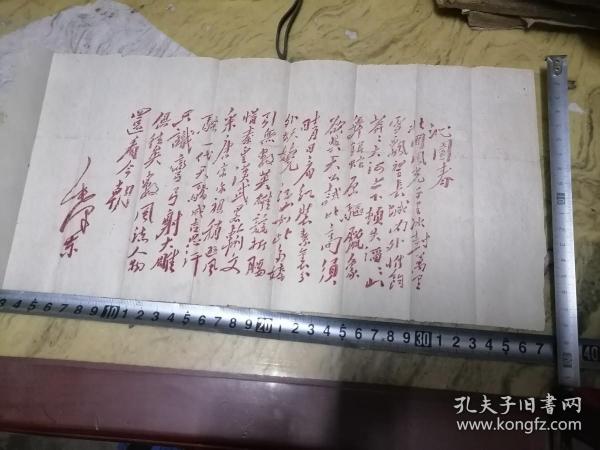 沁园春
北国風光千里冰封万里
雪飘望长城内外惟餘
莽大河上下顿失滔山
舞银蛇原驅腊象
欲与天公试比高须
晴日看红装素裹分
外妖娆江山如此多娇
引无数英雄竞折腰
惜秦皇汉武略输文
采唐宗宋祖稍逊风
骚一代天骄成吉思汗
只識弯弓射大雕
俱往矣数風流人物
還看今朝
毛泽东
10 1 2 3 4 5 6 7 8 9 20 1 2 3 4 5 6 7 8 9 30 1 2 3 4 5 6 7
40
孔夫子旧书网
www.kongfz.com